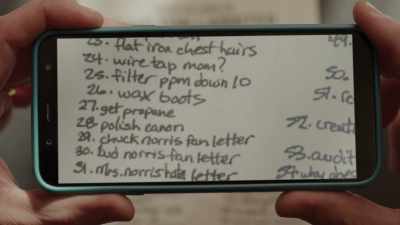 23. flat iron chest hairs
24. wire tap mom?
25. filter ppm down 10
26. wax boots
27. get propane
28. polish canon
29. chuck norris fan letter
30. 2nd norris fan letter
31. Mrs. norris hate letter
49.
50.
51. re
52. creat
53. audit
54. why